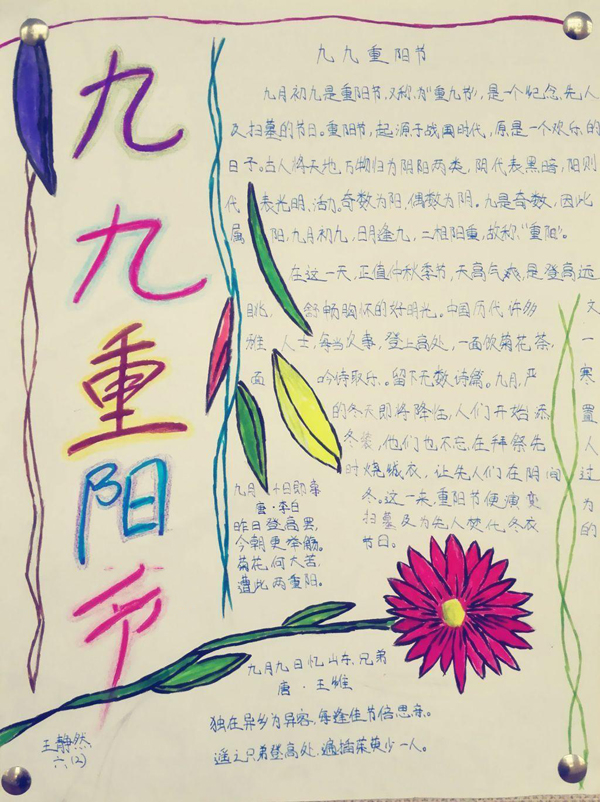 九九重阳节
九九重阳节
九月初九是重阳节,又称为"重九节",是一个纪念先人
及扫墓的节日。重阳节,起源于战国时代,原是一个欢乐的
日子。古人将天地,万物归为阴阳两类,阴代表黑暗,阳则
代表光明,活力。奇数为阳,偶数为阴。九是奇数,因此
属阳,九月初九,日月逢九,二相阳重,故称"重阳"。
在这一天,正值仲秋季节,天高气爽,是登高远
眺,舒畅胸怀的好时光。中国历代许多文
雅人士,每当次事,登上高处,一面饮菊花茶,一
面吟诗取乐。留下无数诗篇。九月,严寒
的冬天即将降临,人们开始添置
冬装,他们也不忘在拜祭先人
时烧纸衣,让先人们在阴间过
冬。这一来,重阳节便演变为
扫墓及为先人焚化冬衣的
节日。
九月十日即事
唐·李白
昨日登高罢,
今朝更举觞。
菊花何太苦,
遭此两重阳。
九月九日忆山东兄弟
唐·王维
独在异乡为异客,每逢佳节倍思亲。
遥知兄弟登高处,遍插茱萸少一人。
王静然
六(2)